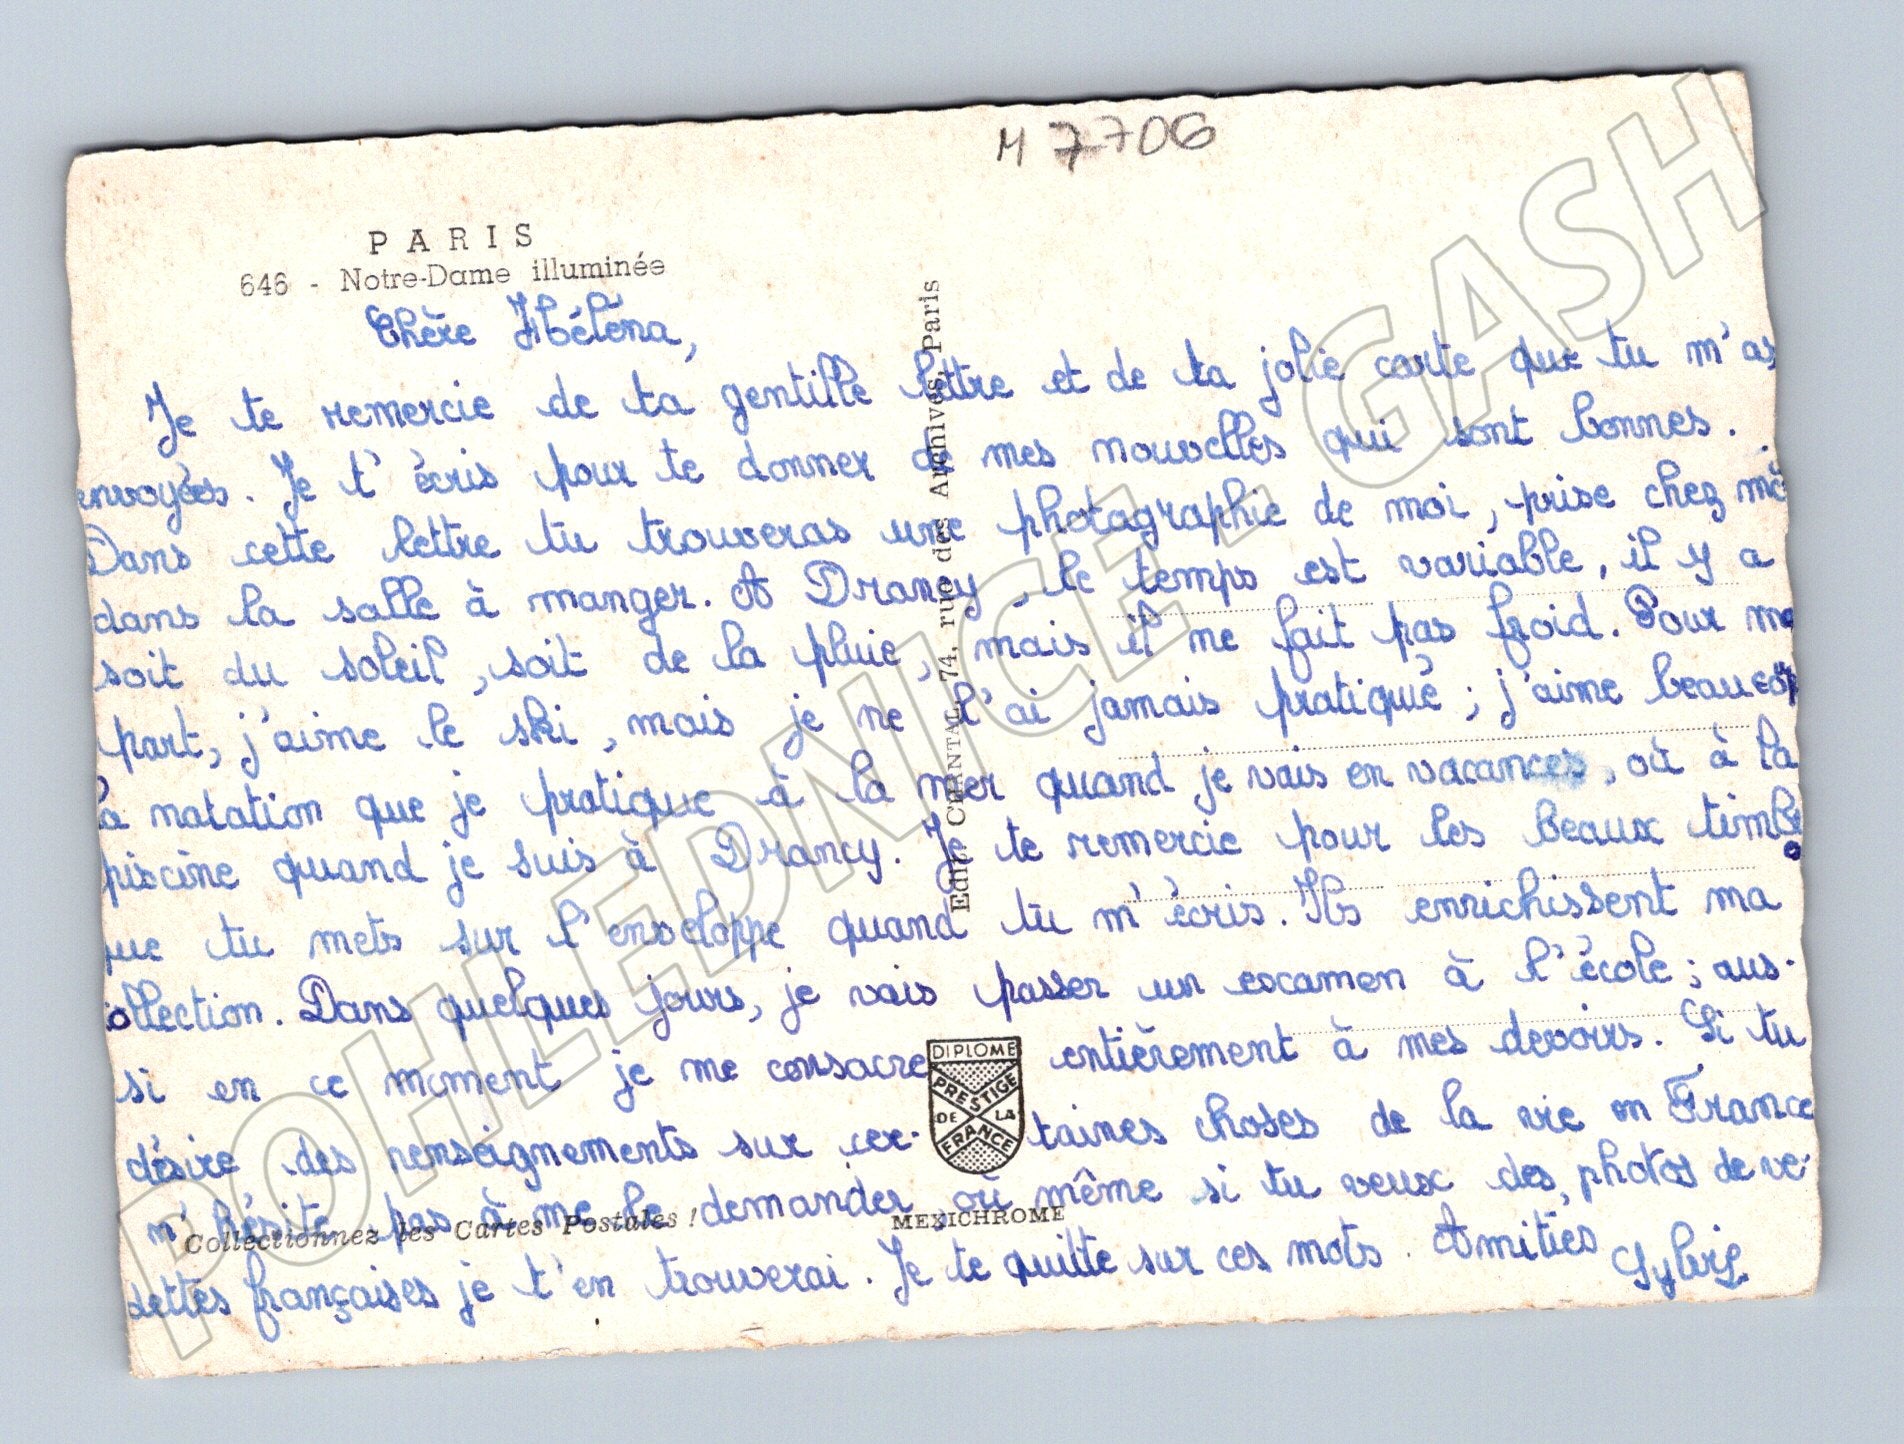 M 7706
PARIS
646 - Notre-Dame illuminée
Chère Héléna,
Je te remercie de ta gentille lettre et de ta jolie carte que tu m'as
envoyées. Je t'écris pour te donner de mes nouvelles qui sont bonnes.
Dans cette lettre tu trouveras une photographie de moi, prise chez moi
dans la salle à manger. A Drancy, le temps est variable, il y a
soit du soleil, soit de la pluie, mais il ne fait pas froid. Pour ma
part, j'aime le ski, mais je ne l'ai jamais pratiqué ; j'aime beaucoup
la natation que je pratique à la mer quand je vais en vacances, où à la
piscine quand je suis à Drancy. Je te remercie pour les beaux timbres
que tu mets sur l'enveloppe quand tu m'écris. Ils enrichissent ma
collection. Dans quelques jours, je vais passer un examen à l'école ; aus-
si en ce moment je me consacre entièrement à mes devoirs. Si tu
désire des renseignements sur cer- taines choses de la vie en France
n'hésite pas à me le demander, où même si tu veux des photos de ve-
dettes françaises je t'en trouverai. Je te quitte sur ces mots. Amitiés
Sylvie
Edit. CHANTAL, 74, rue des Archives, Paris
DIPLOME
PRESTIGE
DE LA
FRANCE
Collectionnez les Cartes Postales !
MEXICHROME
POHLEDNICE - GASH